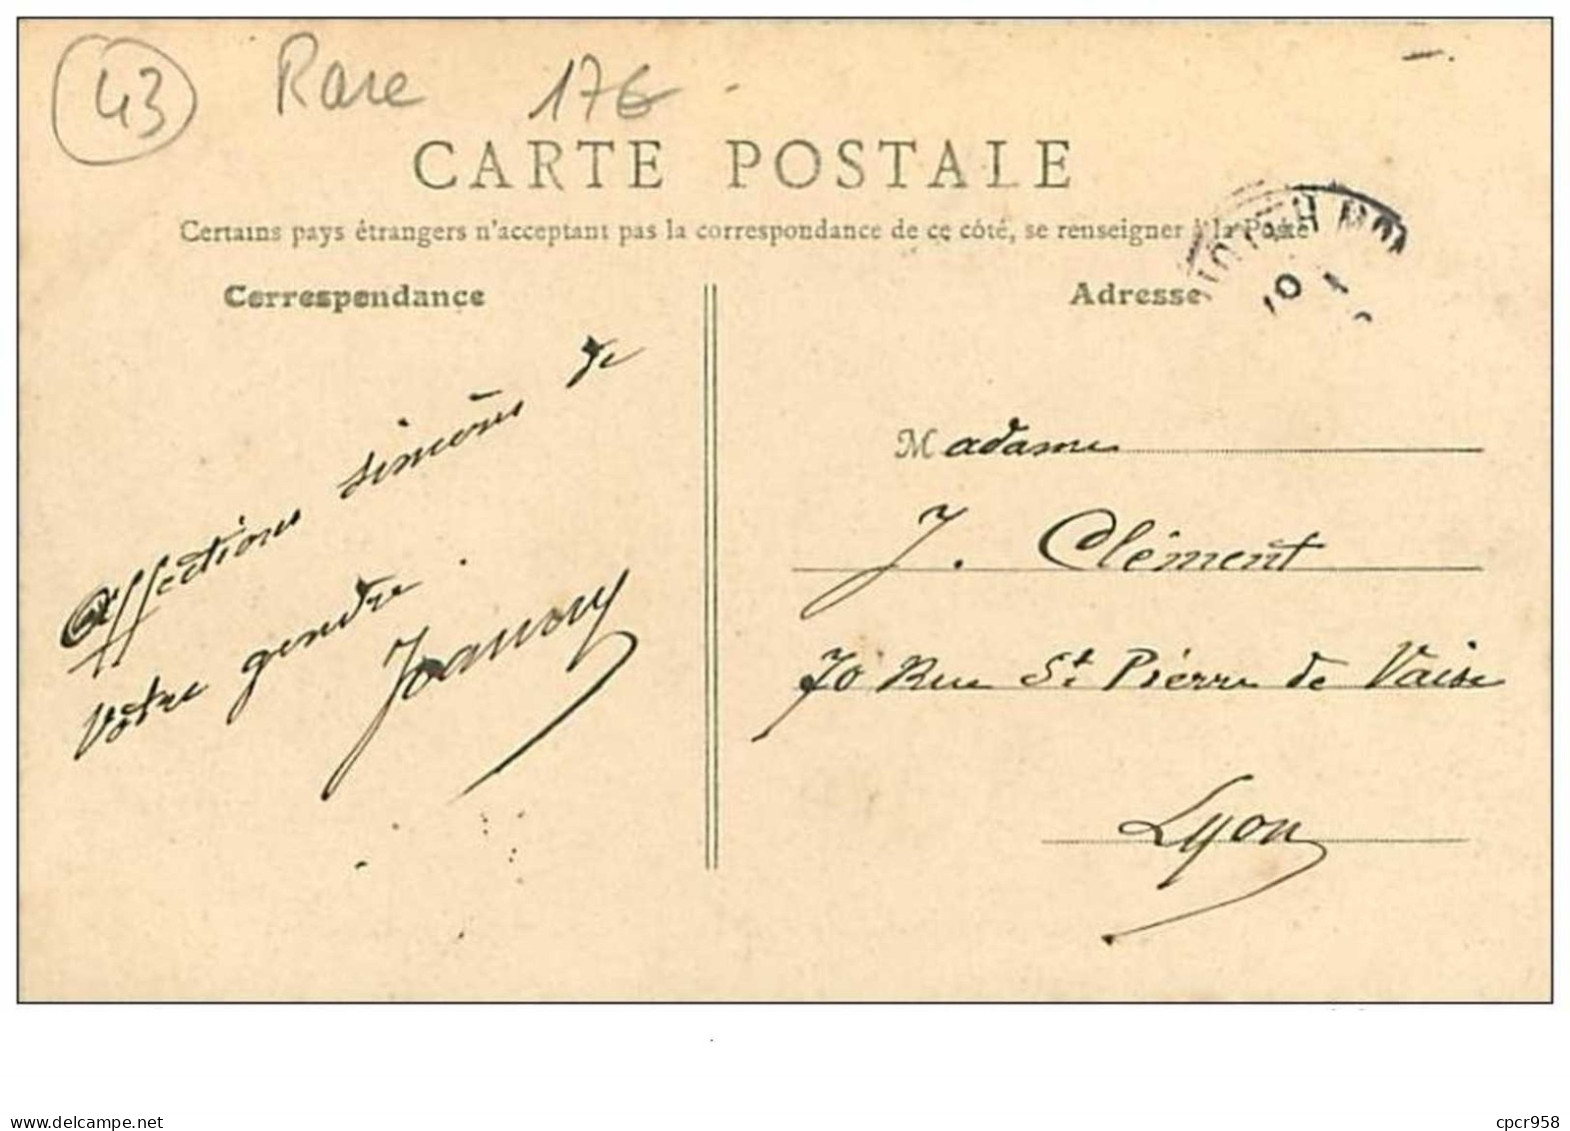 43 Rare 17€
CARTE POSTALE
Certains pays étrangers n'acceptant pas la correspondance de ce côté, se renseigner à la Poste
Correspondance
Adresse
10 1
Affections sincères de
votre gendre.
Joanny
Madame
J. Clément
70 Rue St. Pierre de Vaise
Lyon
my.delcampe.net
cpcr958